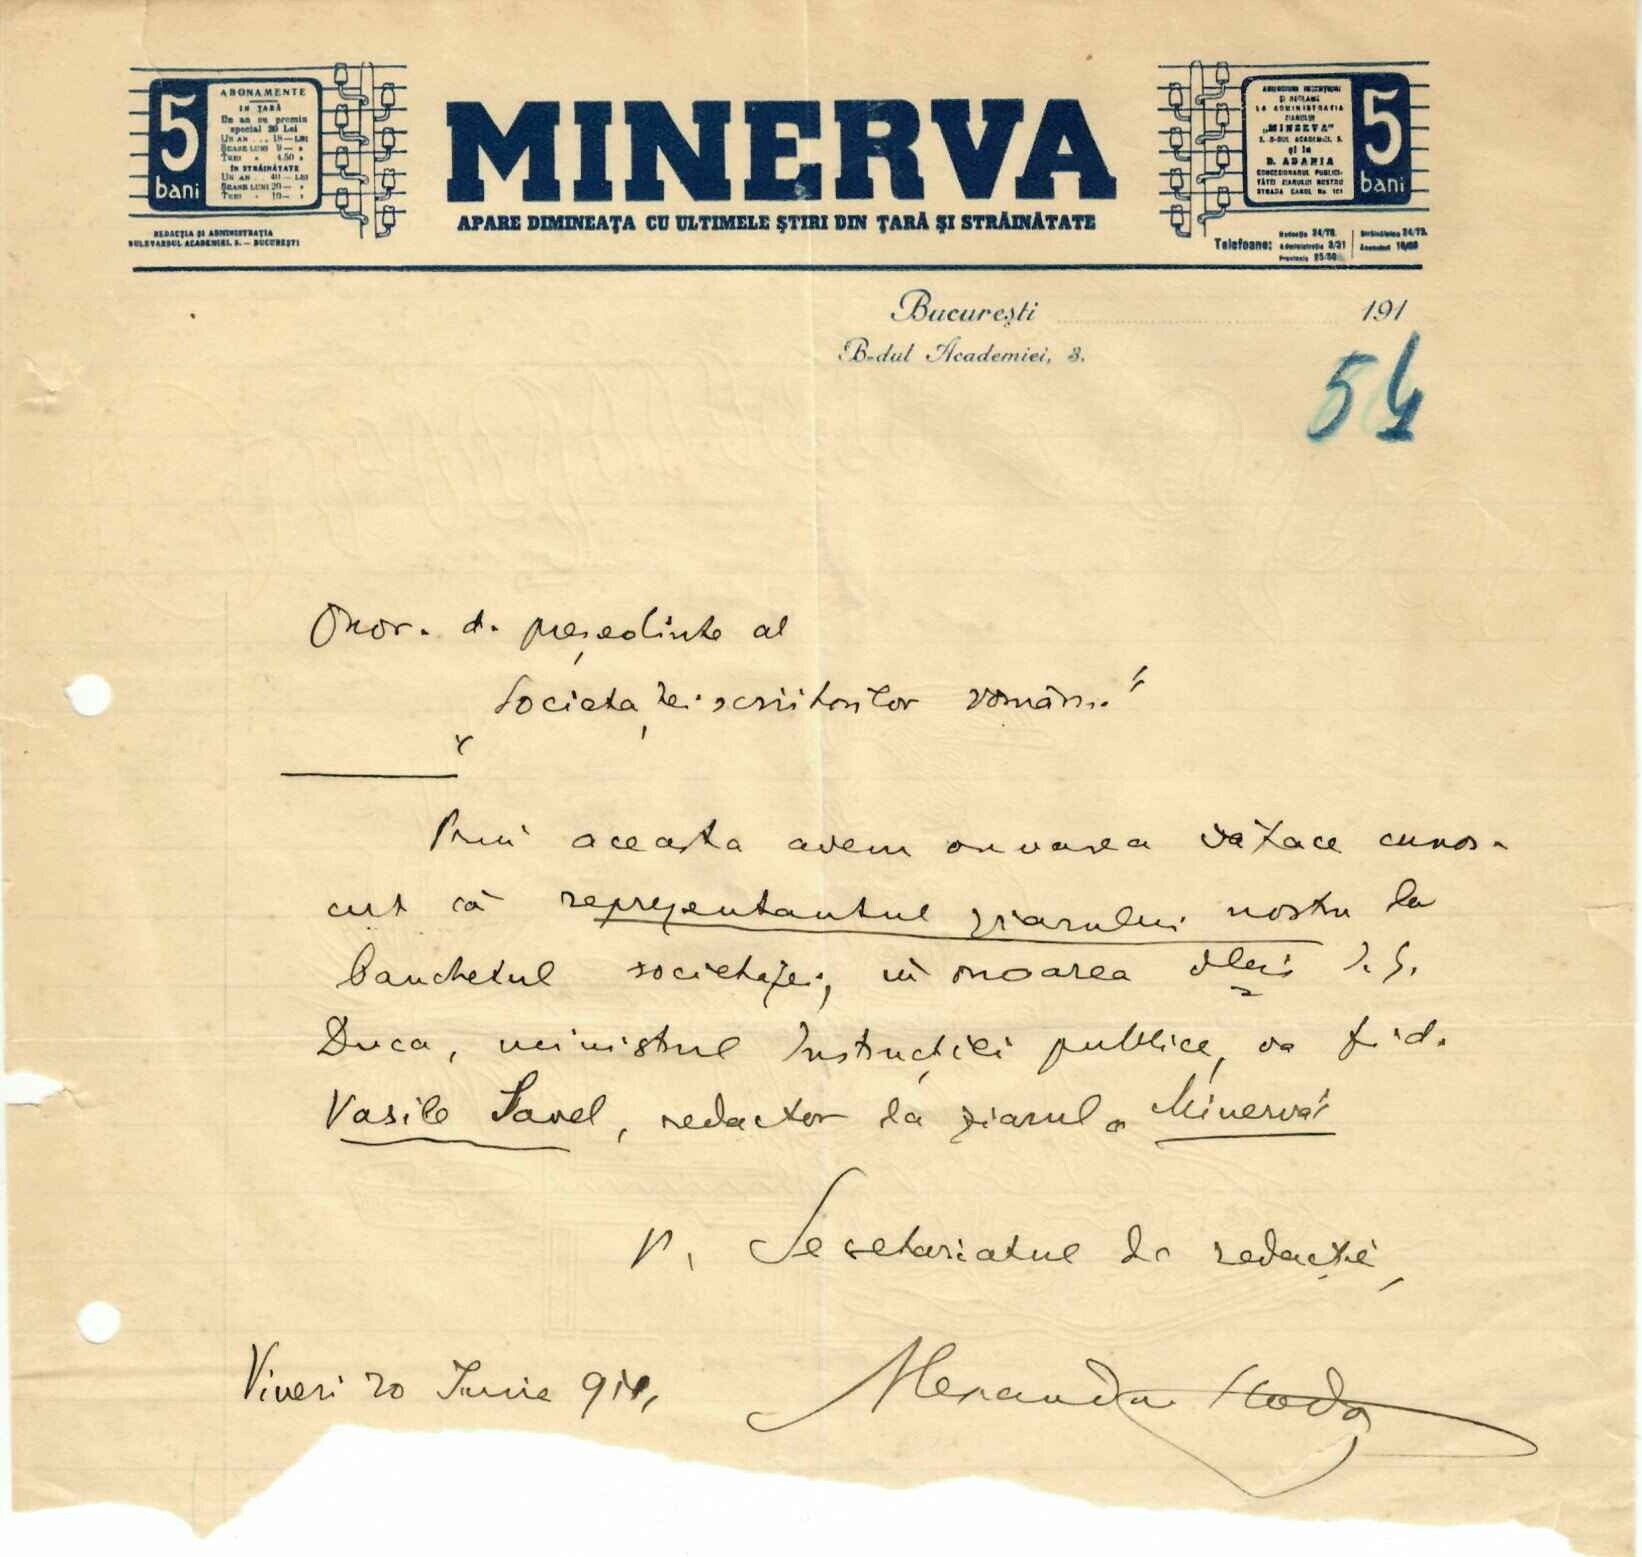 5
bani
ABONAMENTE
IN ȚARĂ
Un an cu premiu
special 20 Lei
UN AN . . . 18 — LEI
ȘEASE LUNI 9 — "
TREI " 4.50 "
IN STRĂINĂTATE
UN AN . . 40 — LEI
ȘEASE LUNI 20 — "
TREI " 10 — "
REDACȚIA ȘI ADMINISTRAȚIA
BULEVARDUL ACADEMIEI, 3. — BUCUREȘTI
MINERVA
APARE DIMINEAȚA CU ULTIMELE ȘTIRI DIN ȚARĂ ȘI STRĂINĂTATE
ȘI RECLAME
LA ADMINISTRATIA
ZIARULUI
„MINERVA"
3, B-DUL ACADEMIEI, 3.
și la
D. ADANIA
CONCESIONARUL PUBLICI-
TĂȚII ZIARULUI NOSTRU
STRADA CAROL No. 101
5
bani
Telefoane:
Redacția 24/73.
Administrația 3/31
Provincia
Străinătatea 24/73.
București 191
B-dul Academiei, 3.
54
Onor. d. președinte al
Societăței scriitorilor români"
Prin aceasta avem onoarea vă face cunos-
cut că reprezentantul ziarului nostru la
banchetul societăței, în onoarea dlui I. G.
Duca, ministrul Instrucției publice, va fi d.
Vasile Savel, redactor la ziarul „Minerva"
p. Secretariatul de redacție,
Vineri 20 Iunie 914,
Alexandru Hodoș